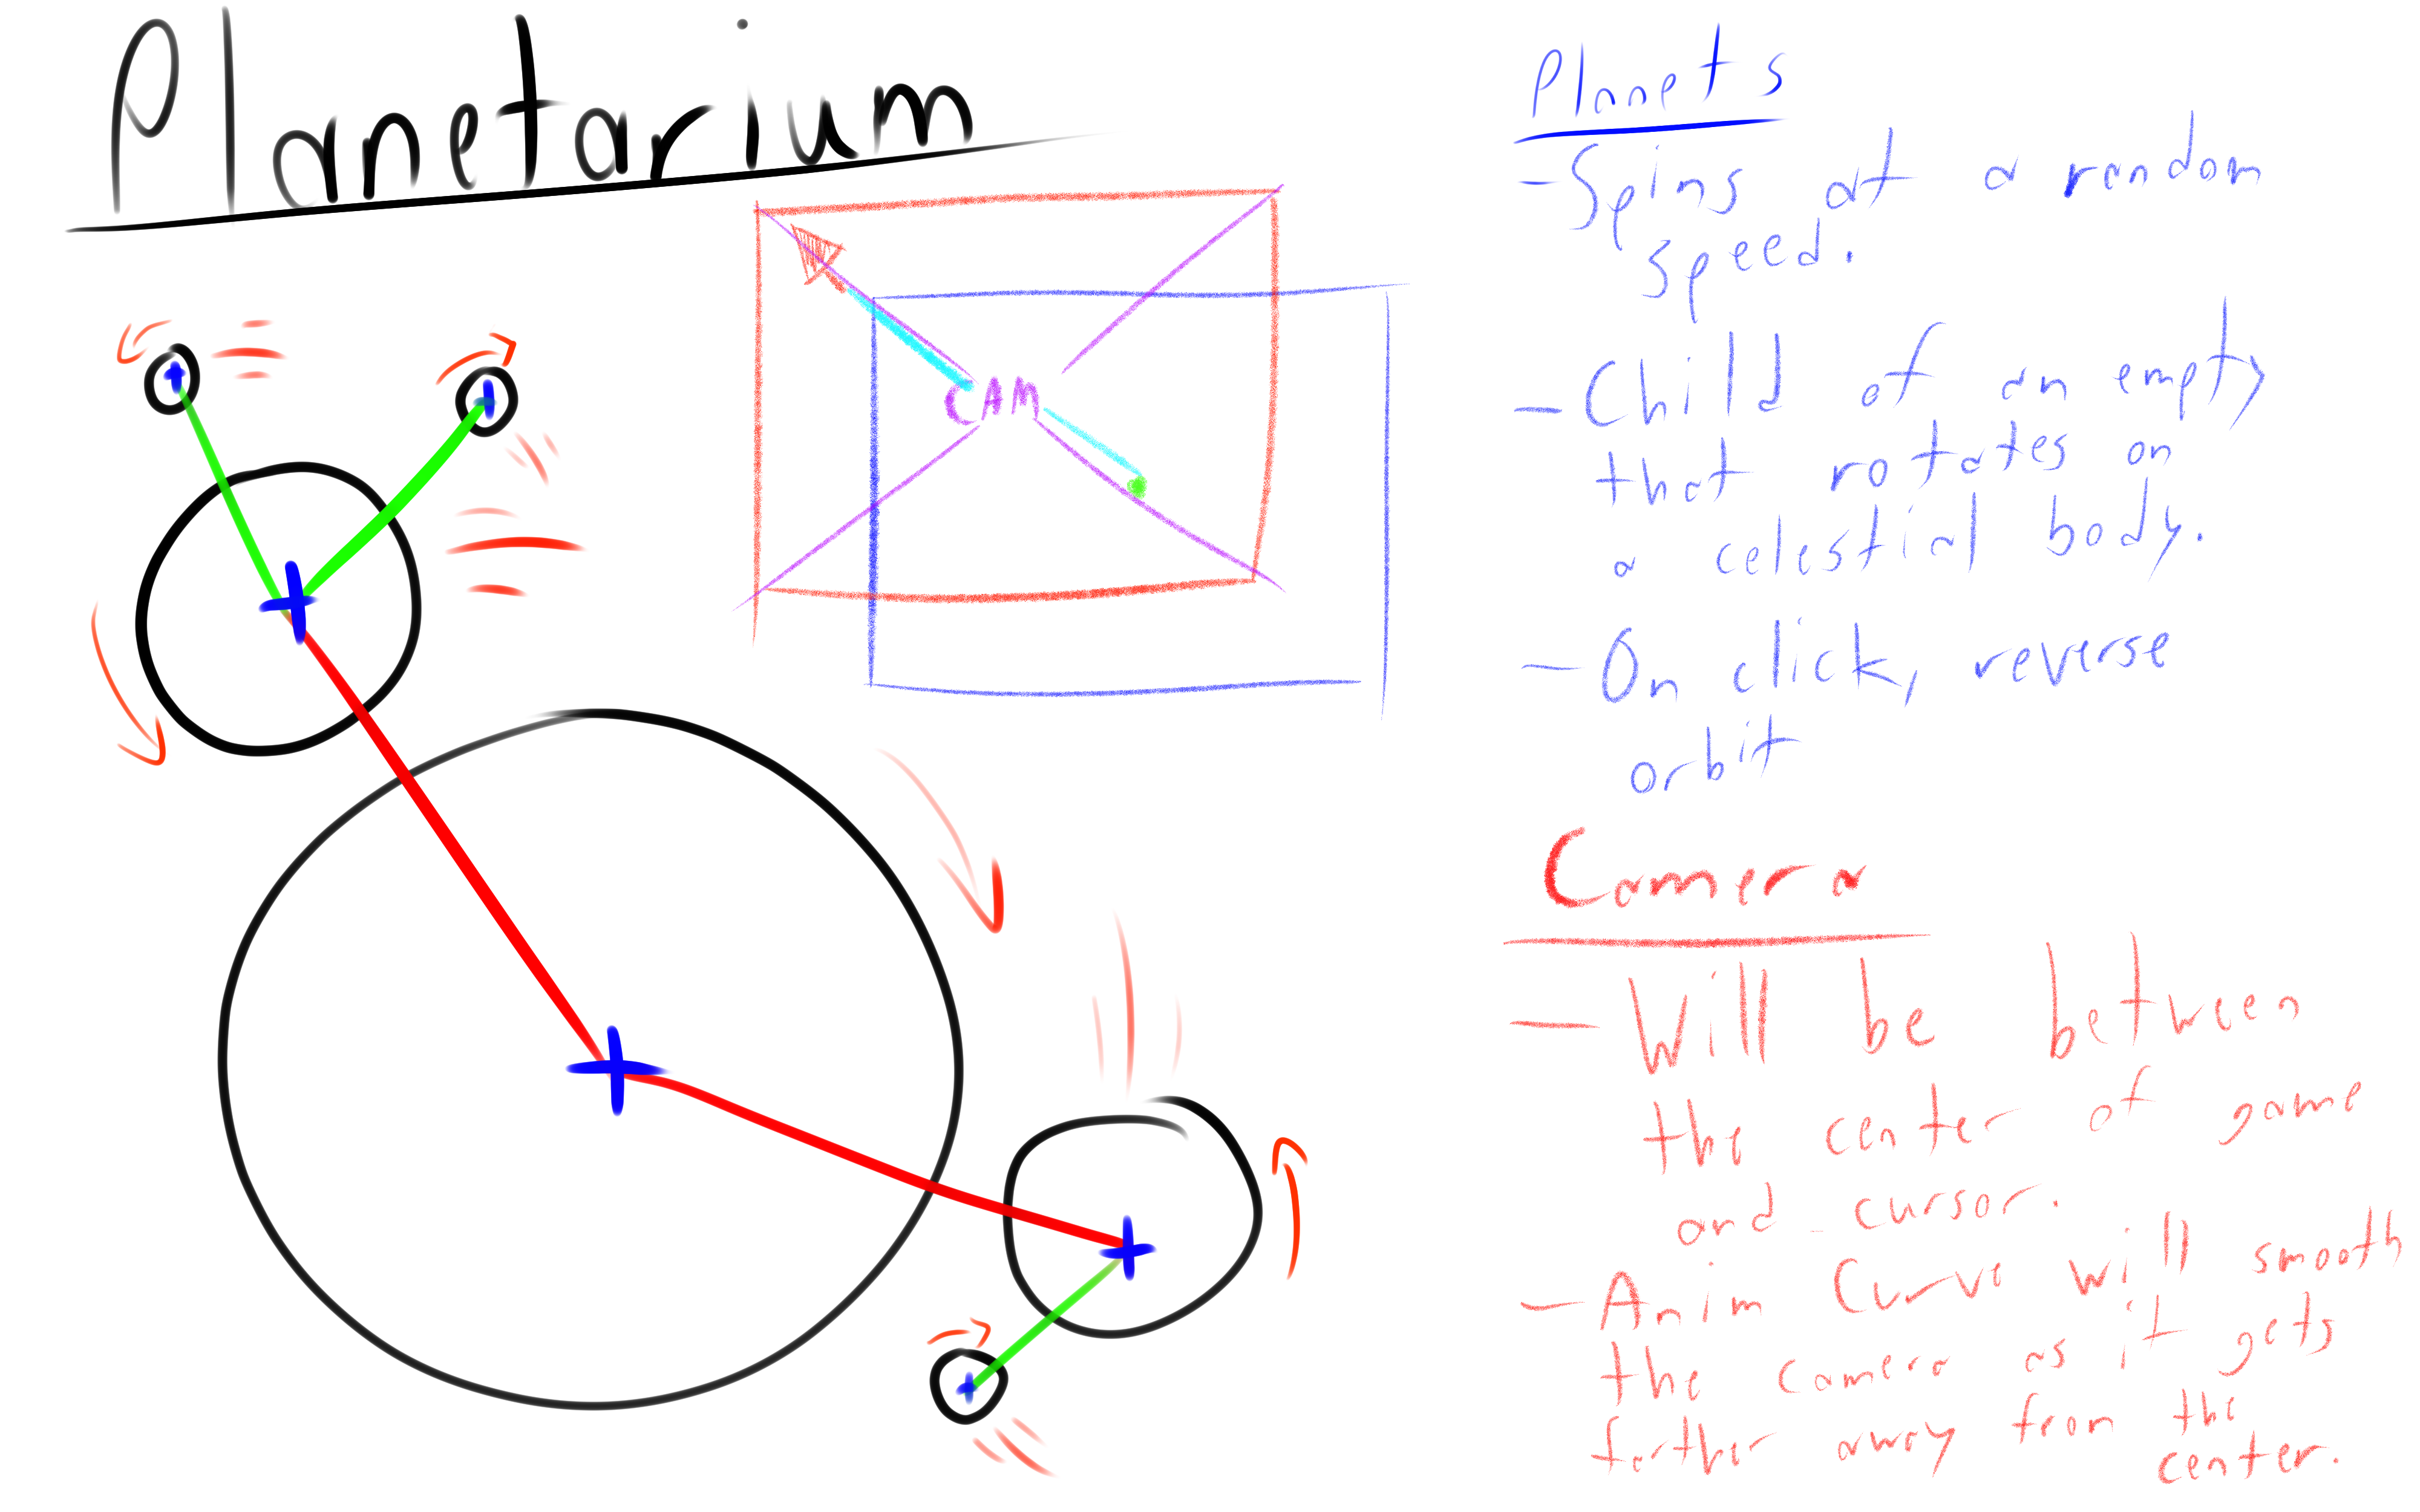 Planetarium
CAM
Planets
- Spins at a random
speed.
- Child of an empty
that rotates on
a celestial body.
- On click, reverse
orbit
Camera
- Will be between
the center of game
and cursor.
- Anim Curve will smooth
the camera as it gets
farther away from the
center.